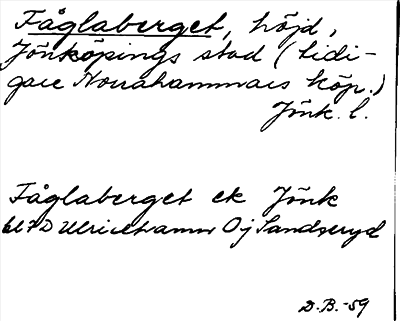 Fåglaberget, höjd,
Jönköpings stad (tidi-
gare Norrahammars köp.)
Jönk. l.
Fåglaberget ek Jönk
6l7D Ulricehamn Öj Sandseryd
D.B.-59